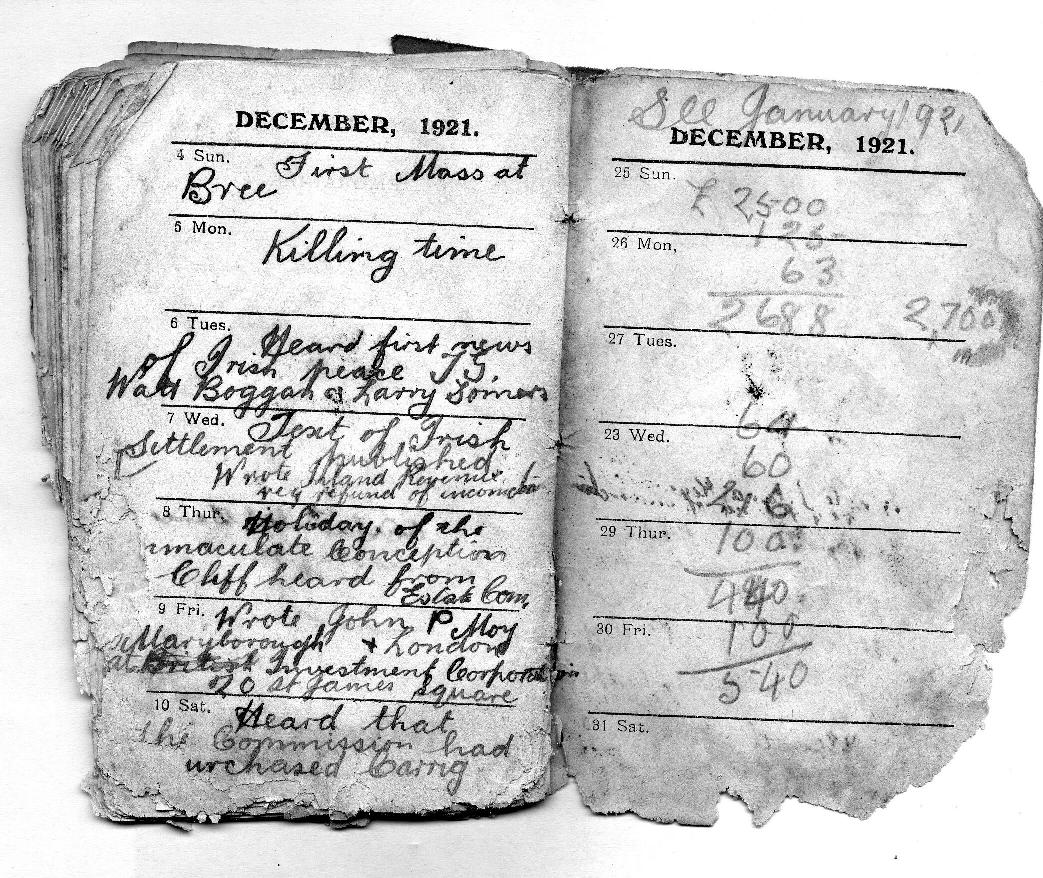 DECEMBER, 1921.
4 Sun.
First Mass at
Bree
5 Mon.
Killing time
6 Tues.
Heard first news
of Irish peace
Watt Boggan & Larry Somers
7 Wed.
Text of Irish
Settlement published.
Wrote Inland Revenue
reg refund of income
8 Thur.
Holiday of the
mmaculate Conception
Cliff heard from
Estate Com,
9 Fri.
Wrote John P Moy
Maryborough + London
at British Investment Corporation
20 St James square
10 Sat.
Heard that
the Commission had
urchased Carrig
See January 1921
DECEMBER, 1921.
25 Sun.
£ 2500
125
26 Mon,
63
2688 2,700
27 Tues.
64
23 Wed.
60
29 Thur.
100
440
30 Fri.
100
540
31 Sat.